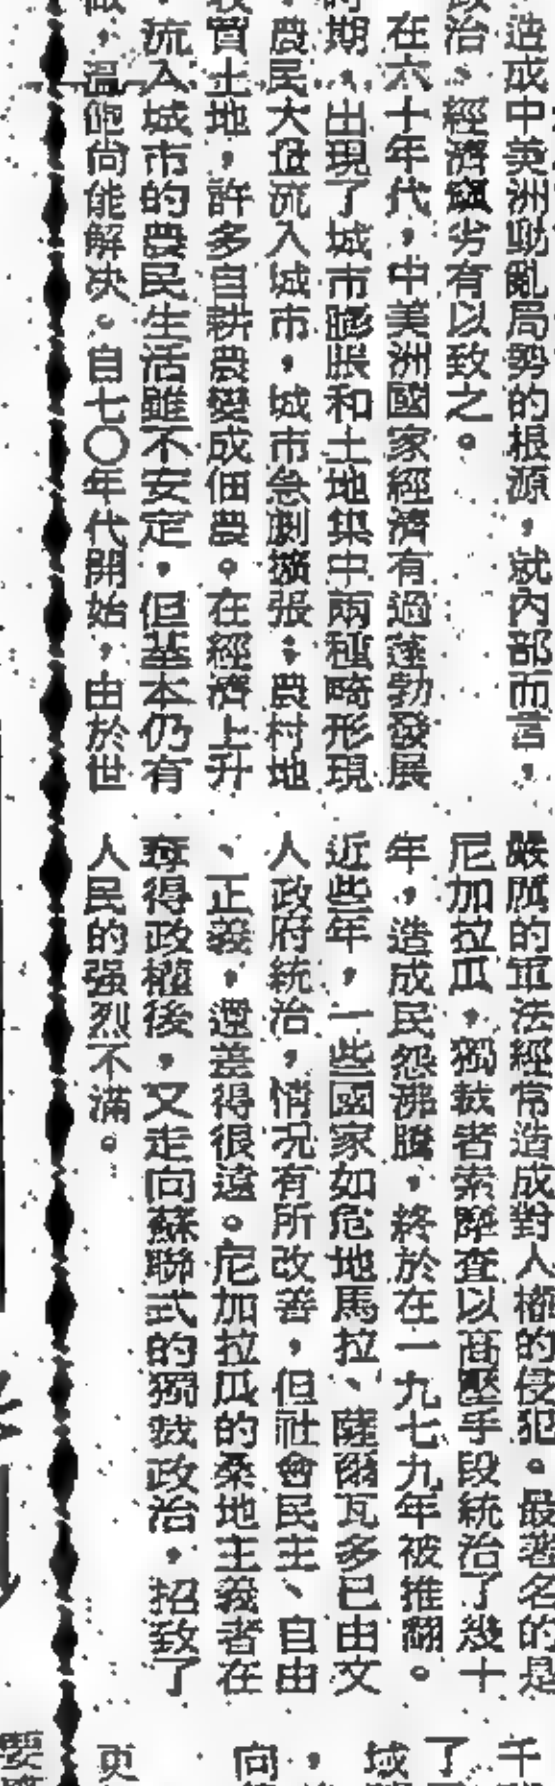 造成中美洲動亂局勢的根源，就內部而言，
政治、經濟窳劣有以致之。
在六十年代，中美洲國家經濟有過蓬勃發展
時期，出現了城市膨脹和土地集中兩種畸形現
農民大量流入城市，城市急劇擴張；農村地
買土地，許多自耕農變成佃農。在經濟上升
流入城市的農民生活雖不安定，但基本仍有
，溫飽尚能解決。自七〇年代開始，由於世
嚴厲的軍法經常造成對人權的侵犯。最著名的是
尼加拉瓜，獨裁者索摩查以高壓手段統治了幾十
年，造成民怨沸騰，終於在一九七九年被推翻。
近些年，一些國家如危地馬拉、薩爾瓦多已由文
人政府統治，情況有所改善，但社會民主、自由
、正義，還差得很遠。尼加拉瓜的桑地主義者在
奪得政權後，又走向蘇聯式的獨裁政治，招致了
人民的强烈不滿。
千
了
域
，
向
更
要